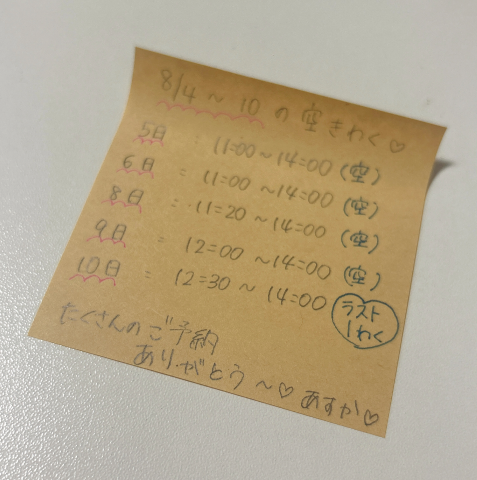 8/4～10の空きわく♡
5日 : 11:00～14:00 (空)
6日 : 11:00～14:00 (空)
8日 : 11:20～14:00 (空)
9日 : 12:00～14:00 (空)
10日 : 12:30～14:00 ラスト1わく
たくさんのご予約
ありがとう～♡ あすか♡